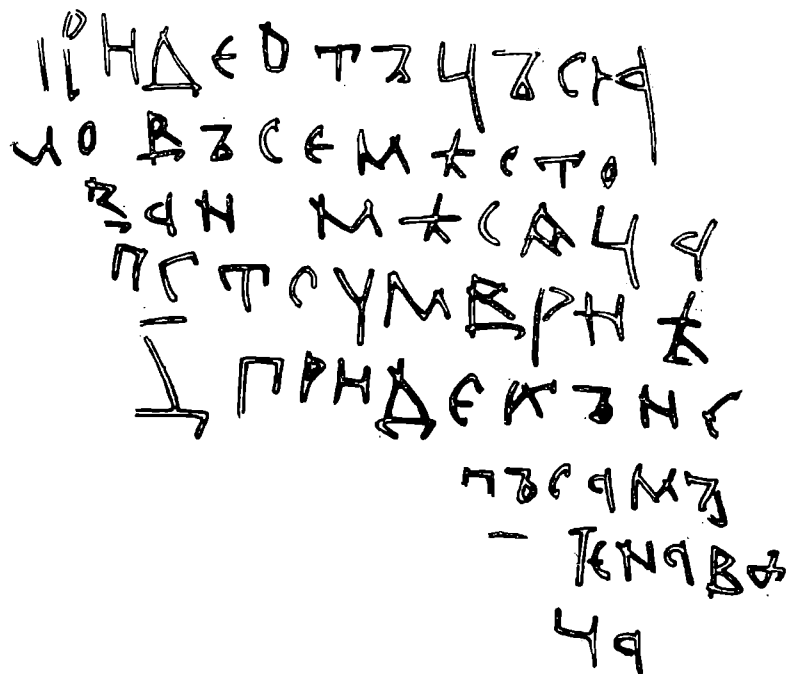 придеотъчъсꙗ
ло въсемѣсто
ꙁаи мѣсаца
пстоумвриѣ
д̄ придекъис
пъсамъ
тенавѣ
ча